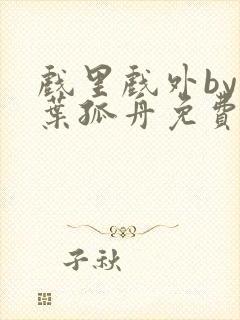 戲里戲外by
葉孤舟免費
子秋